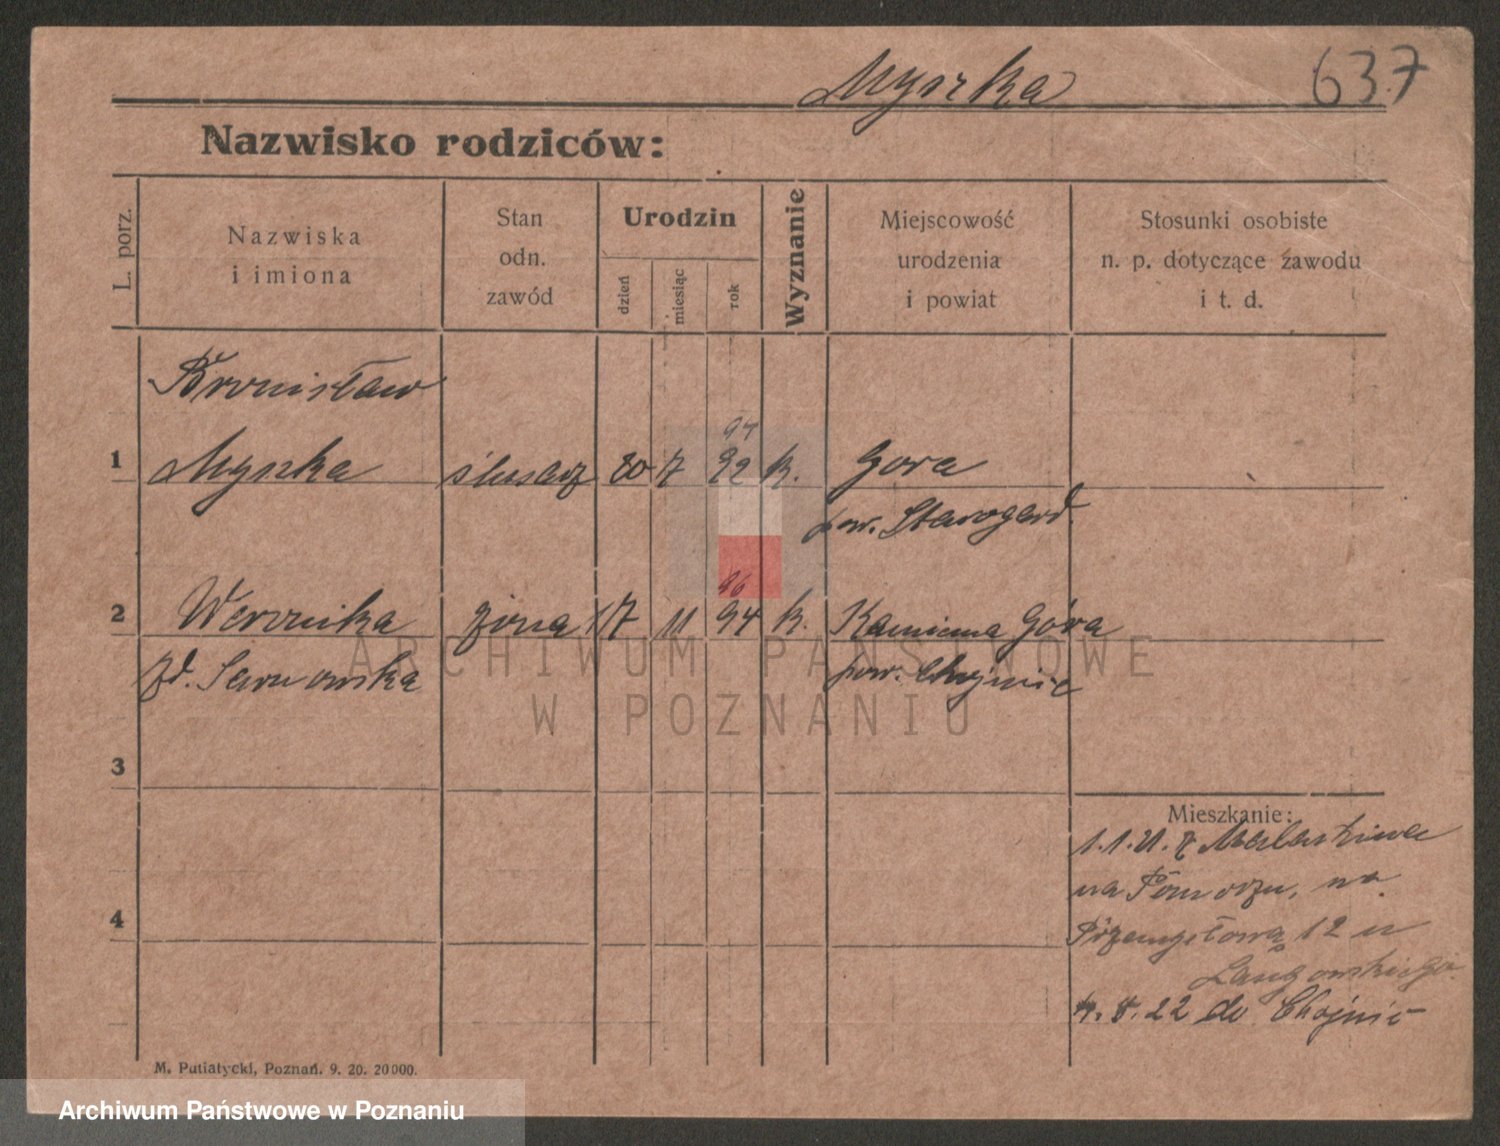 Myszka 637
Nazwisko rodziców:
L. porz.
Nazwiska
i imiona
Stan
odn.
zawód
Urodzin
dzień
miesiąc
rok
Wyznanie
Miejscowość
urodzenia
i powiat
Stosunki osobiste
n. p. dotyczące zawodu
i t. d.
Bronisław
1 Myszka ślusarz 7 92 k. Gora
pow. Starogard
2 Weronika żona 17 11 94 k. Kamienna Góra
zd. Sarnowska pow. Chojnic
ARCHIWUM PAŃSTWOWE
W POZNANIU
3
Mieszkanie:
1.1.21. z
na Pomorzu, na
4
Przemysłową 12 u
22 do Chojnic
M. Putiatycki, Poznań. 9. 20. 20000.
Archiwum Państwowe w Poznaniu